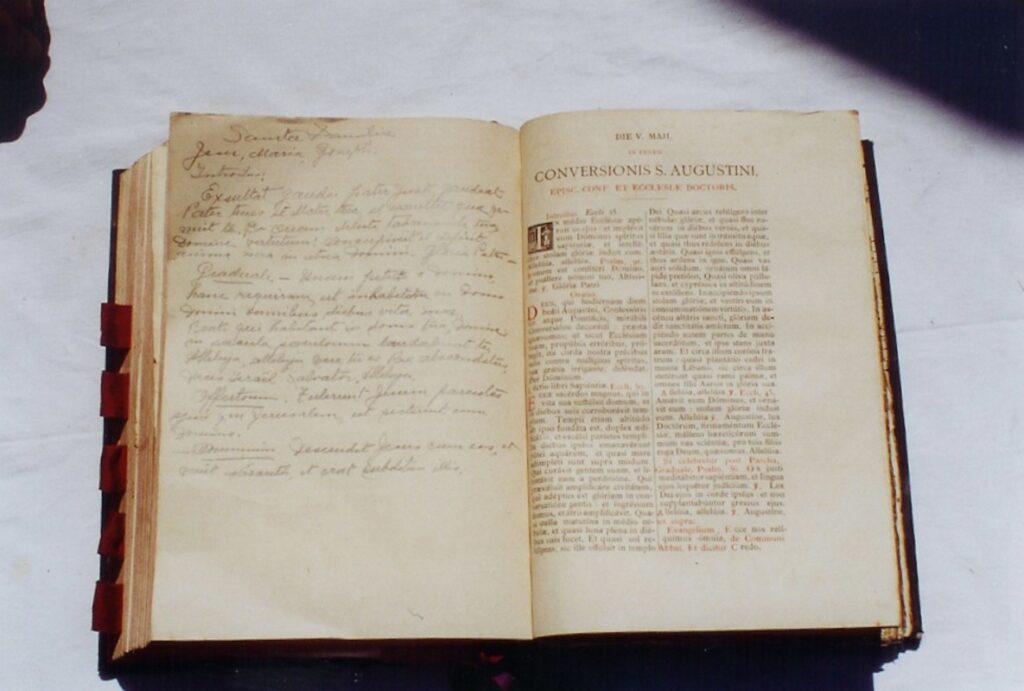 Sancta Familia
Jesu, Maria, Joseph.
Introitus:
Exsultat gaudio pater justi, gaudeat
Pater tuus et Mater tua, et exsultet quae ge-
nuit te. Ps Quam dilecta tabernacula tua
Domine virtutum! concupiscit et deficit
anima mea in atria Domini. Gloria Patri
Graduale - Unam petii a Domino,
hanc requiram, ut inhabitem in domo
Domini omnibus diebus vitae meae.
Beati qui habitant in domo tua, Domine
in saecula saeculorum laudabunt te,
Alleluja, alleluja vere tu es Rex absconditus,
Deus Israël Salvator, Alleluja.
Offertorium. Tulerunt Jesum parentes
ejus in Jerusalem ut sisterent eum
Domino.
Communio Descendit Jesus cum eis, et
venit Nazareth et erat subditus illis.
DIE V. MAII.
IN FESTO
CONVERSIONIS S. AUGUSTINI,
EPISC. CONF. ET ECCLESIÆ DOCTORIS.
Introitus Eccli 15.
IN médio Ecclésiæ apé-
ruit os ejus: et implévit
eum Dóminus spíritu
sapiéntiæ, et intellé-
stolam glóriæ índuit eum.
Allelúia, allelúia. Psalm. 91.
est confitéri Dómino,
et psállere nómini tuo, Altís-
℣. Glória Patri
Oratio.
DEus, qui hodiérnam diem
beáti Augustíni, Confessóris
atque Pontíficis, mirábili
Conversióne decorásti
Per Dóminum
Léctio libri Sapiéntiæ. Eccli. 50.
ECce sacérdos magnus, qui in
vita sua suffúlsit domum, et
in diébus suis corroborávit tem-
plum. Templi étiam altitúdo
ab ipso fundáta est, duplex ædi-
ficátio, et excélsi paríetes templi.
In diébus ipsíus emanavérunt
pútei aquárum, et quasi mare
adimpléti sunt supra modum.
Qui curávit gentem suam, et li-
berávit eam a perditióne. Qui
præváluit amplificáre civitátem,
qui adéptus est glóriam in con-
versatióne gentis: et ingréssum
domus, et átrii amplificávit. Qua-
si stella matutína in médio né-
bulæ, et quasi luna plena in dié-
bus suis lucet. Et quasi sol re-
fúlgens, sic ille effúlsit in templo
Dei. Quasi arcus refúlgens inter
nébulas glóriæ, et quasi flos ro-
sárum in diébus vernis, et qua-
si lília quæ sunt in tránsitu aquæ,
et quasi thus rédolens in diébus
æstátis. Quasi ignis effúlgens, et
thus ardens in igne. Quasi vas
auri sólidum, ornátum omni lá-
pide pretióso. Quasi olíva púllu-
lans, et cypréssus in altitúdinem
se extóllens. In accipiéndo ipsum
stolam glóriæ, et vestíri eum in
consummatiónem virtútis. In as-
cénsu altáris sancti, glóriam de-
dit sanctitátis amíctum. In acci-
piéndo autem partes de manu
sacerdótum, et ipse stans juxta
aram. Et circa illum coróna fra-
trum: quasi plantátio cedri in
monte Líbano, sic circa illum
stetérunt quasi rami palmæ, et
omnes fílii Aaron in glória sua.
Allelúia, allelúia ℣. Eccli. 45.
Amávit eum Dóminus, et orná-
vit eum: stolam glóriæ índuit
eum. Allelúia ℣. Augustíne, lux
Doctórum, firmaméntum Ecclé-
siæ, málleus hæreticórum sum-
mum vas sciéntiæ, ora pro tuis fíliis
roga Deum, quǽsumus. Allelúia.
Si celebretur post Pascha,
Graduale, Psalm. 36. Os justi
meditábitur sapiéntiam, et lingua
ejus loquétur judícium. ℣. Lex
Dei ejus in corde ipsíus: et non
supplantabúntur gressus ejus.
Allelúia, allelúia. ℣. Augustíne,
ut supra.
Evangelium, Ecce nos relí-
quimus ómnia, de Communi
Abbat. Et dicitur Credo.